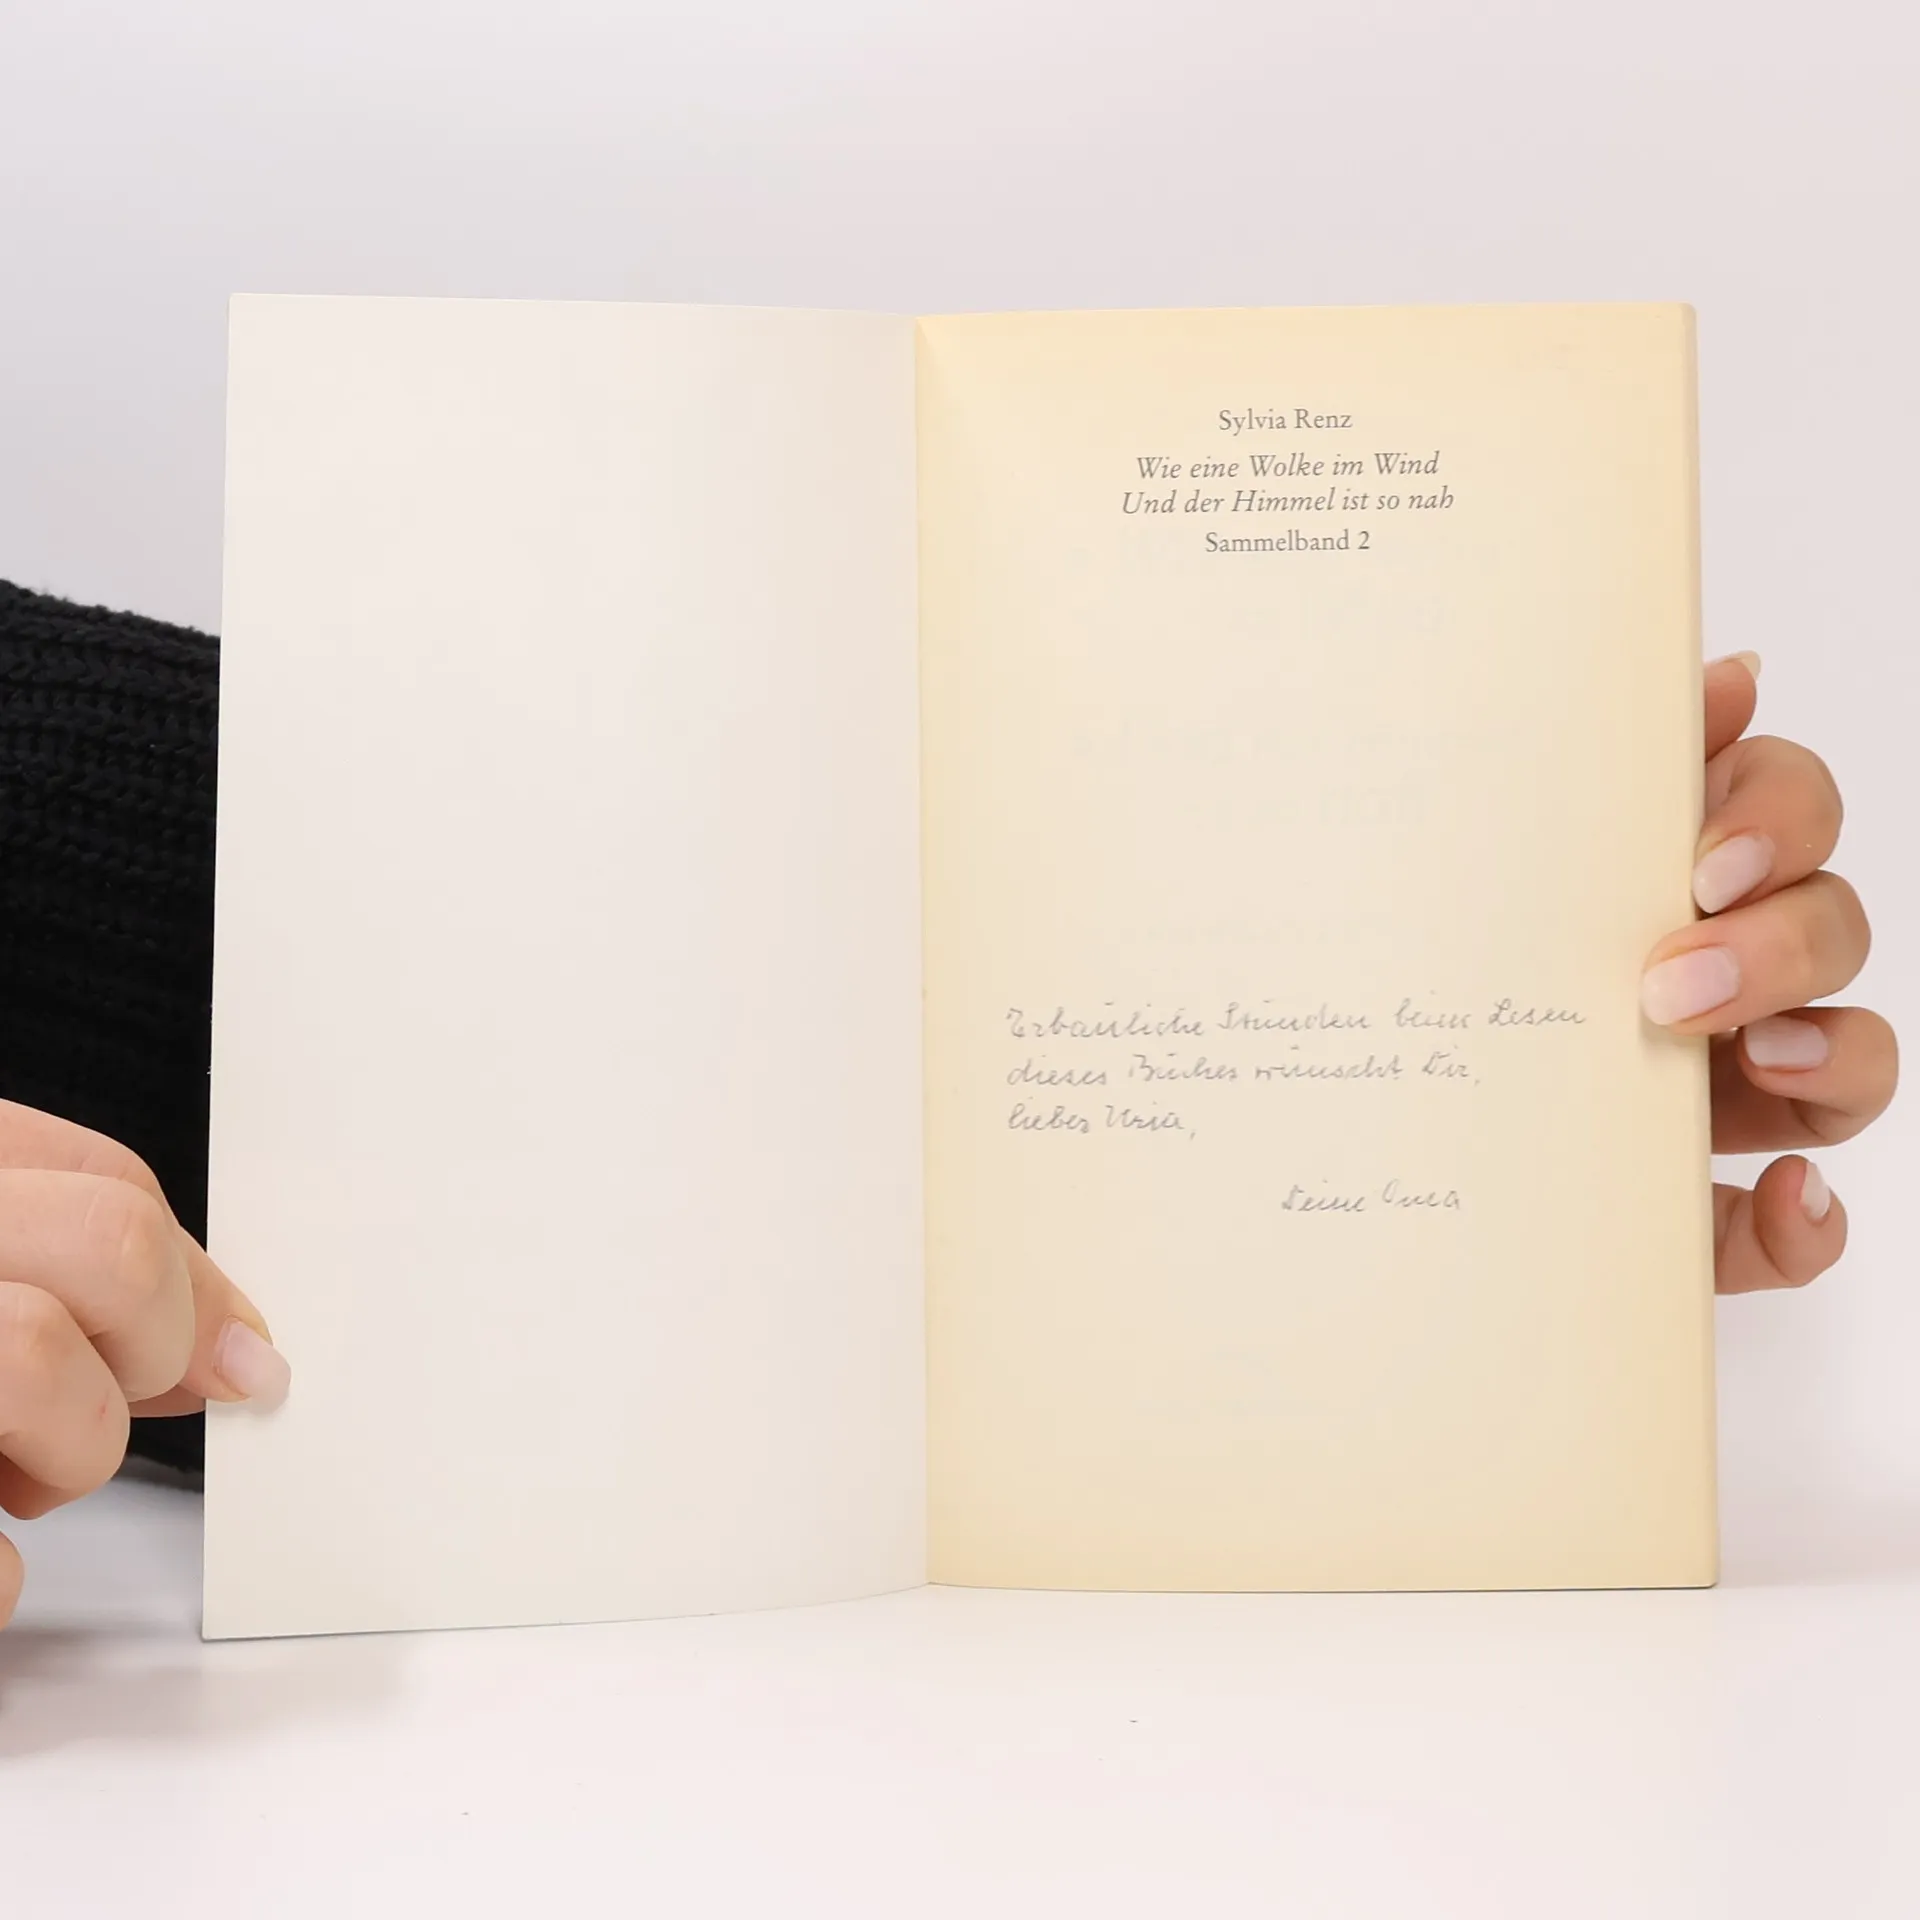 Sylvia Renz
Wie eine Wolke im Wind
Und der Himmel ist so nah
Sammelband 2
Erbauliche Stunden beim Lesen
dieses Buches wünscht Dir,
lieber
Deine Oma